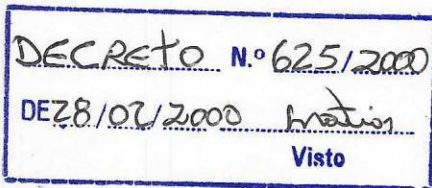 DECRETO N.º 625/2000
DE 28/02/2000
Visto